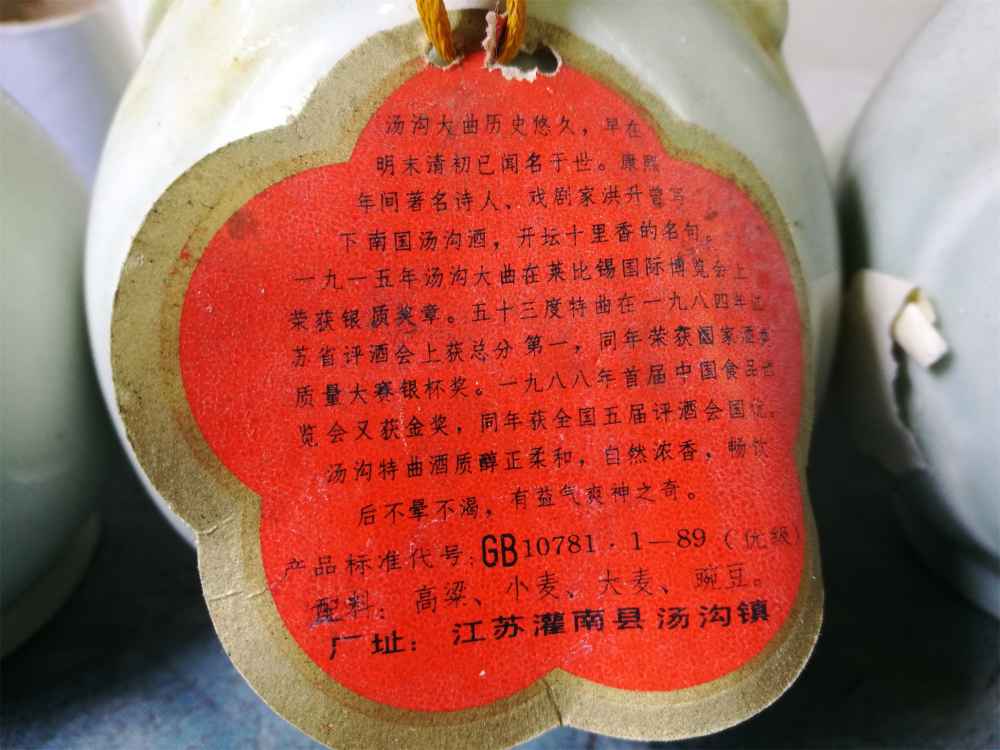 汤沟大曲历史悠久，早在
明末清初已闻名于世。康熙
年间著名诗人、戏剧家洪升曾写
下南国汤沟酒，开坛十里香的名句。
一九一五年汤沟大曲在莱比锡国际博览会上
荣获银质奖章。五十三度特曲在一九八四年江
苏省评酒会上获总分第一，同年荣获国家酒类
质量大赛银杯奖。一九八八年首届中国食品博
览会又获金奖，同年获全国五届评酒会国优。
汤沟特曲酒质醇正柔和，自然浓香，畅饮
后不晕不渴，有益气爽神之奇。
产品标准代号：GB10781·1—89（优级）
配料：高粱、小麦、大麦、豌豆。
厂址：江苏灌南县汤沟镇